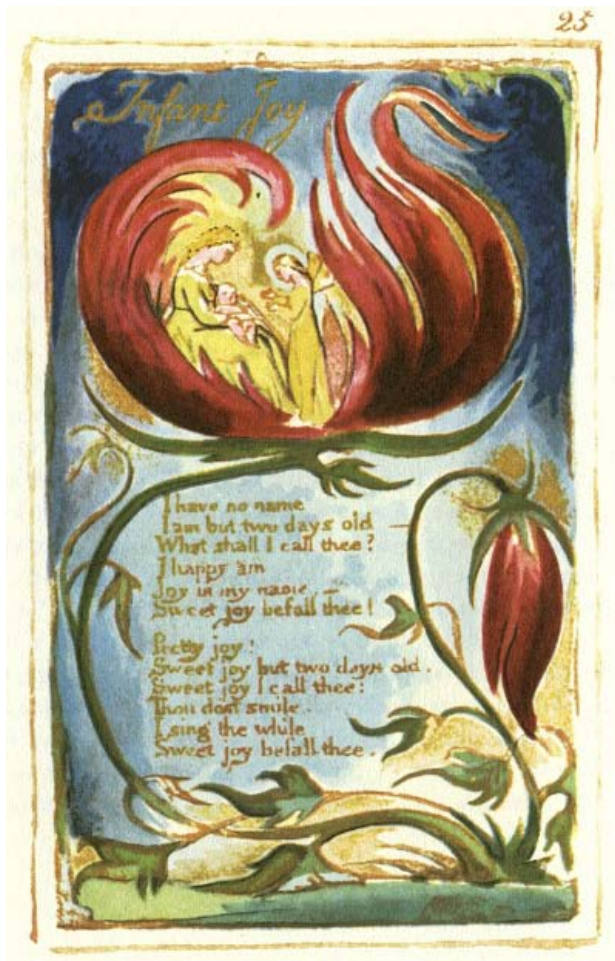 25
Infant Joy
I have no name
I am but two days old —
What shall I call thee?
I happy am
Joy is my name, —
Sweet joy befall thee!
Pretty joy!
Sweet joy but two days old.
Sweet joy I call thee:
Thou dost smile.
I sing the while
Sweet joy befall thee.